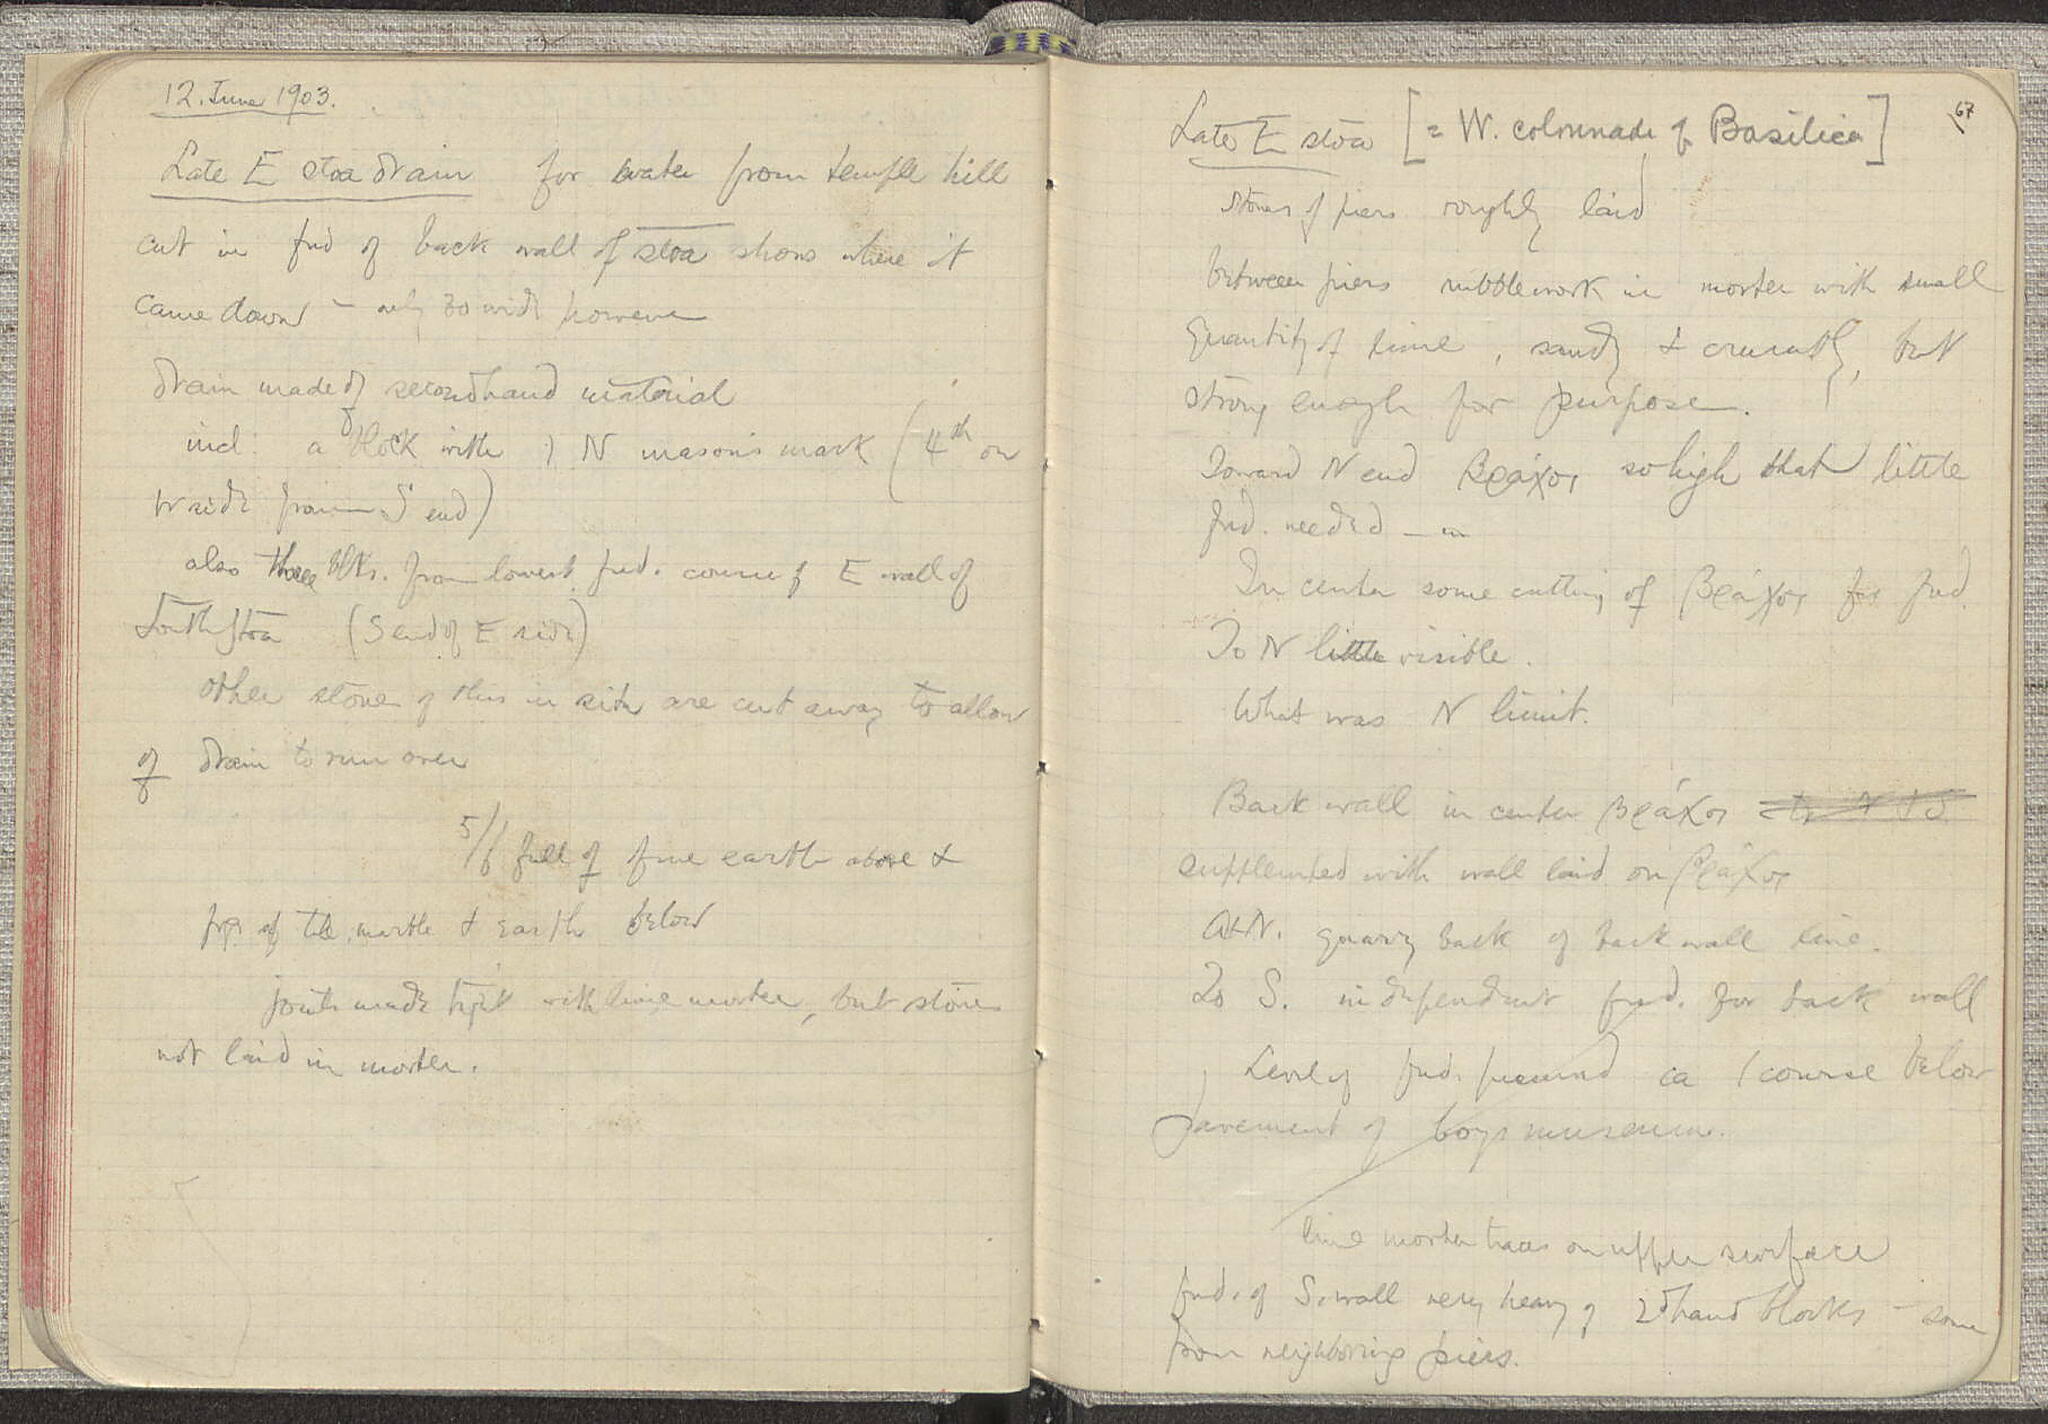 12. June 1903.
Late E stoa drain for water from temple hill
cut in fnd of back wall of stoa shows where it
came down – only 30 wide however
drain made of secondhand material
incl. a block with N mason's mark (4th on
W side from S end)
also three blks. from lowest fnd. course of E wall of
South Stoa (S end of E side)
other stones of this in situ are cut away to allow
of drain to run over
5/6 full of fine earth above &
frgs of tile, marble & earth below
joints made tight with lime mortar, but stones
not laid in mortar.
67
Late E stoa [= W. colonnade of Basilica]
stones of piers roughly laid
between piers rubblework in mortar with small
quantity of lime, sandy & crumbly, but
strong enough for purpose.
Toward N end βράχος so high that little
fnd. needed –
In center some cutting of βράχος for fnd.
To N little visible.
What was N limit.
Back wall in center βράχος to N & S
supplemented with wall laid on βράχος
At N. quarry back of back wall line.
To S. independent fnd. for back wall
Level of fnd. preserved ca 1 course below
pavement of boys museum.
lime mortar traces on upper surface
fnd. of S. wall very heavy of 2dhand blocks – some
from neighboring piers.